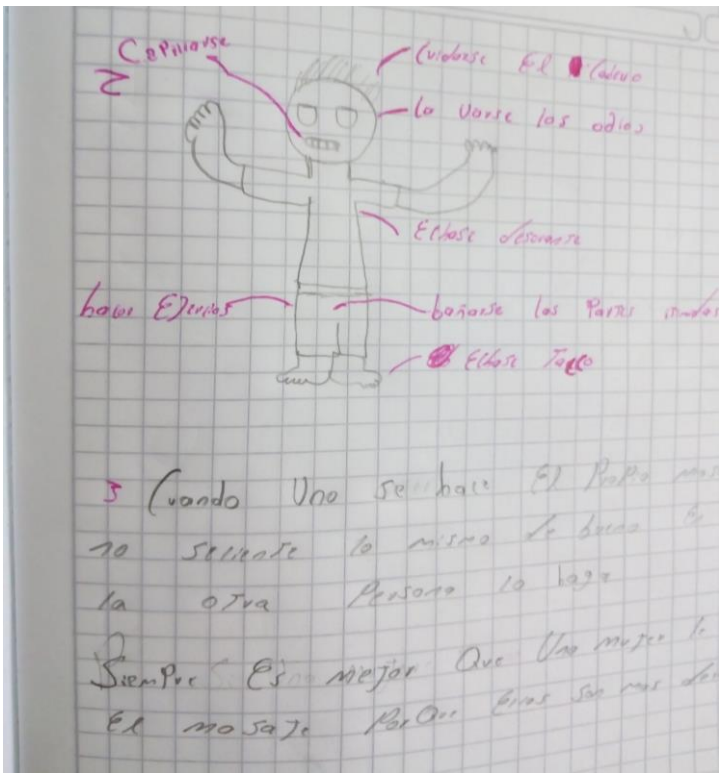 2
Cepillarse
Cuidarse El
la Varse los odios
Echase desorante
hacer Ejercicios
bañarse las Partes
Echase Talco
3 Cuando Uno se hace El Propio
no seciente lo mismo de bueno
la otra Persona lo haga
Siempre Es mejor Que Una mujer
El masaje PorQue Ellas son mas